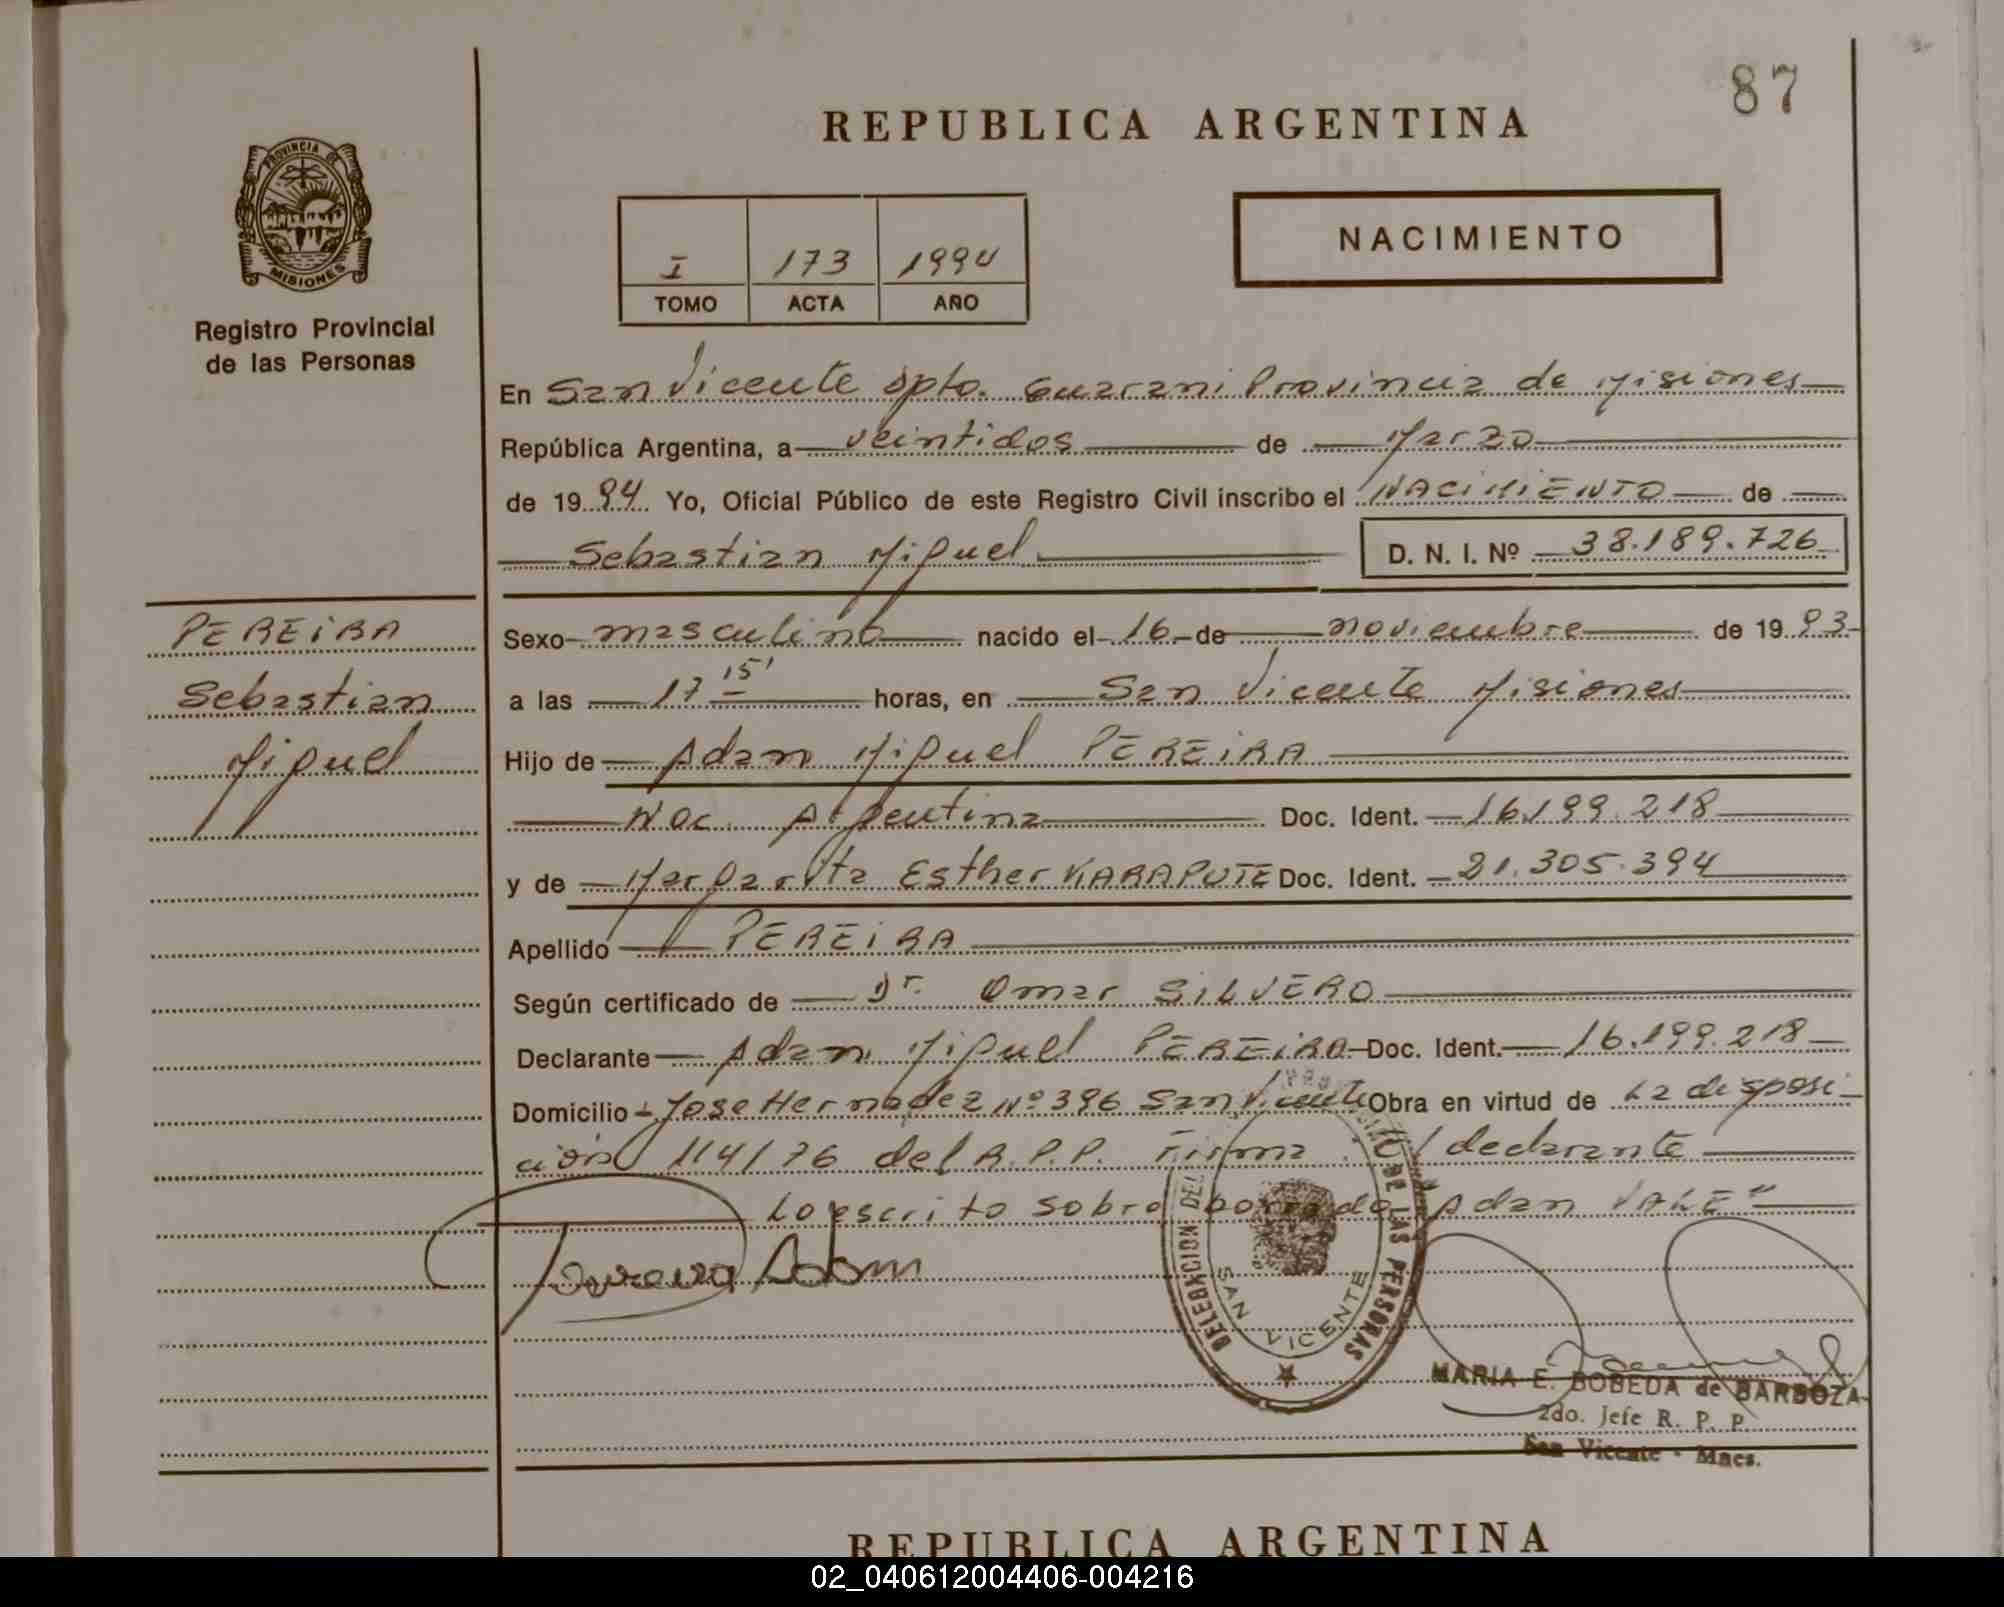 87
REPUBLICA ARGENTINA
PROVINCIA DE
MISIONES
Registro Provincial
de las Personas
I 173 1994
TOMO ACTA AÑO
NACIMIENTO
En San Vicente Dpto. Guarani Provincia de Misiones
República Argentina, a veintidos de Marzo
de 19 94 Yo, Oficial Público de este Registro Civil inscribo el NACIMIENTO de
Sebastian Miguel D. N. I. Nº 38.189.726
PEREIRA
Sebastian
Miguel
Sexo masculino nacido el 16 de noviembre de 19 93
a las 17 15' horas, en San Vicente Misiones
Hijo de Adan Miguel PEREIRA
Nac. Argentina Doc. Ident. 16.199.218
y de Margarita Esther KARAPUTE Doc. Ident. 21.305.394
Apellido PEREIRA
Según certificado de Dr. Omar SILVERO
Declarante Adan Miguel PEREIRA Doc. Ident. 16.199.218
Domicilio Jose Hernadez Nº 396 San Vicente Obra en virtud de La disposi-
ción 114/76 del R.P.P. Firma el declarante
Lo escrito sobre borrado Adan VALE"
Pereira Adam
DELEGACION DEL DE LAS PERSONAS
SAN VICENTE
MARIA E. BOBEDA de BARBOZA
2do. Jefe R. P. P.
San Vicente - Mnes.
REPUBLICA ARGENTINA
02_040612004406-004216